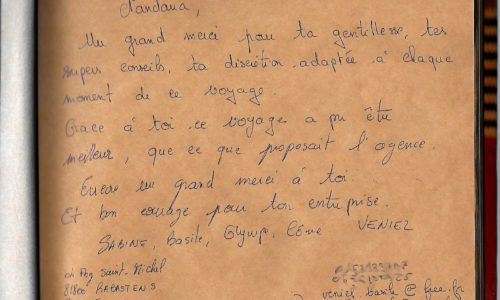 Nandana,
Un grand merci pour ta gentillesse, tes
supers conseils, ta discrétion adaptée à chaque
moment de ce voyage.
Grace à toi ce voyage a pu être
meilleur, que ce que proposait l'agence.
Encore un grand merci à toi.
Et bon courage pour ton entreprise.
SABINE, Basile, Olymp, Côme VENIEZ
Saint Michel
81800 RABASTENS
veniel.basile @ free.fr